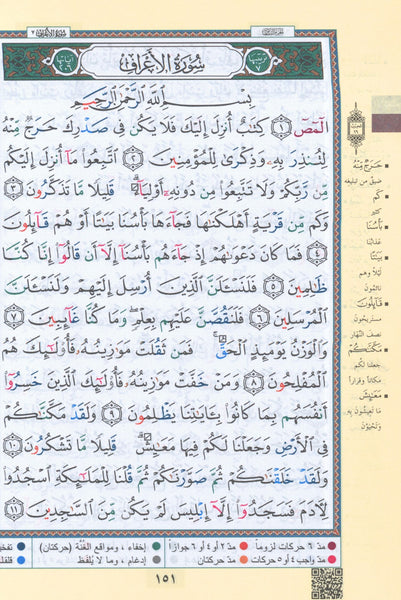 سُورَةُ الْأَعْرَافِ
ترتيبها ٧
آياتها ٢٠٦
بِسْمِ اللَّهِ الرَّحْمَٰنِ الرَّحِيمِ
الٓمٓصٓ ١ كِتَٰبٌ أُنزِلَ إِلَيْكَ فَلَا يَكُن فِى صَدْرِكَ حَرَجٌ مِّنْهُ
لِتُنذِرَ بِهِۦ وَذِكْرَىٰ لِلْمُؤْمِنِينَ ٢ ٱتَّبِعُوا۟ مَآ أُنزِلَ إِلَيْكُم
مِّن رَّبِّكُمْ وَلَا تَتَّبِعُوا۟ مِن دُونِهِۦٓ أَوْلِيَآءَ ۗ قَلِيلًا مَّا تَذَكَّرُونَ ٣
وَكَم مِّن قَرْيَةٍ أَهْلَكْنَٰهَا فَجَآءَهَا بَأْسُنَا بَيَٰتًا أَوْ هُمْ قَآئِلُونَ
٤ فَمَا كَانَ دَعْوَىٰهُمْ إِذْ جَآءَهُم بَأْسُنَآ إِلَّآ أَن قَالُوٓا۟ إِنَّا كُنَّا
ظَٰلِمِينَ ٥ فَلَنَسْـَٔلَنَّ ٱلَّذِينَ أُرْسِلَ إِلَيْهِمْ وَلَنَسْـَٔلَنَّ
ٱلْمُرْسَلِينَ ٦ فَلَنَقُصَّنَّ عَلَيْهِم بِعِلْمٍ ۖ وَمَا كُنَّا غَآئِبِينَ ٧
وَٱلْوَزْنُ يَوْمَئِذٍ ٱلْحَقُّ ۚ فَمَن ثَقُلَتْ مَوَٰزِينُهُۥ فَأُو۟لَٰٓئِكَ هُمُ
ٱلْمُفْلِحُونَ ٨ وَمَنْ خَفَّتْ مَوَٰزِينُهُۥ فَأُو۟لَٰٓئِكَ ٱلَّذِينَ خَسِرُوٓا۟
أَنفُسَهُم بِمَا كَانُوا۟ بِـَٔايَٰتِنَا يَظْلِمُونَ ٩ وَلَقَدْ مَكَّنَّٰكُمْ
فِى ٱلْأَرْضِ وَجَعَلْنَا لَكُمْ فِيهَا مَعَٰيِشَ ۗ قَلِيلًا مَّا تَشْكُرُونَ ١٠
وَلَقَدْ خَلَقْنَٰكُمْ ثُمَّ صَوَّرْنَٰكُمْ ثُمَّ قُلْنَا لِلْمَلَٰٓئِكَةِ ٱسْجُدُوا۟
لِءَادَمَ فَسَجَدُوٓا۟ إِلَّآ إِبْلِيسَ لَمْ يَكُن مِّنَ ٱلسَّٰجِدِينَ ١١
حَرَجٌ مِّنْهُ
ضيق من تبليغه
كَم
كثير
بَأْسُنَا
عذابنا
بَيَٰتًا
ليلاً وهم
نائمون
قَآئِلُونَ
مستريحون
نصف النهار
مَكَّنَّٰكُمْ
جعلنا لكم
مكاناً وقراراً
مَعَٰيِشَ
ما تعيشون به
وتحيون
مدّ ٦ حركات لزوماً مدّ ٢ أو ٤ أو ٦ جوازاً إخفاء، ومواقع الغُنَّة (حركتان)
مدّ واجب ٤ أو ٥ حركات مدّ حركتان إدغام، وما لا يُلفَظ
١٥١